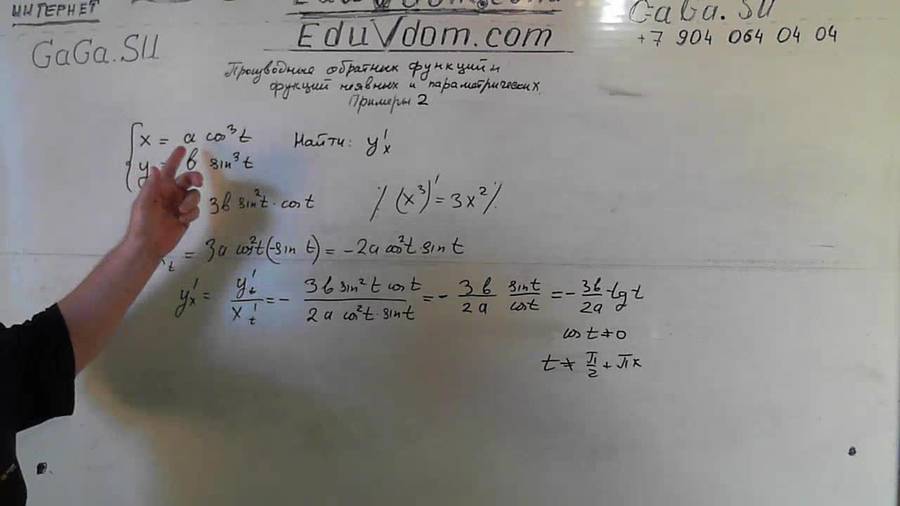 ИНТЕРНЕТ
GaGa.SU
EduVdom.com
GaGa.SU
+7 904 064 04 04
Производные обратных функций и
функций неявных и параметрических.
Примеры 2
x = a cos³t
Найти: y'ₓ
y = b sin³t
3b sin²t · cos t
/. (x³)' = 3x² /.
t = 3a cos²t(-sin t) = -2a cos²t sin t
y'ₓ = y'ₜ / x'ₜ = - 3b sin²t cos t / 2a cos²t sin t = - 3b / 2a sin t / cos t = - 3b / 2a tg t
cos t ≠ 0
t ≠ π/2 + πk